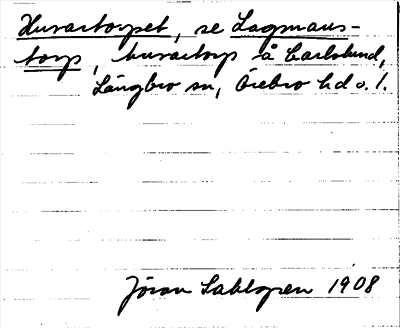 Husartorpet, se Lagmans-
torp, husartorp å Carlslund,
Längbro sn, Örebro hd o. l.
Jöran Sahlgren 1908